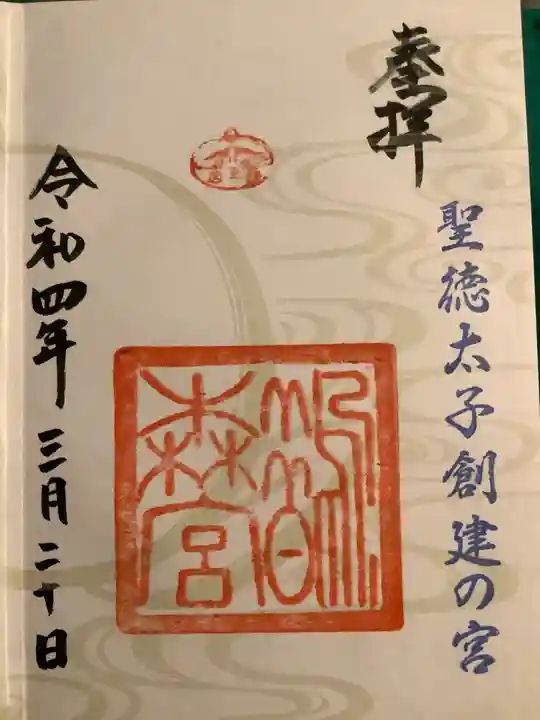 奉拝
聖徳太子創建の宮
鵲森宮
令和四年三月二十日